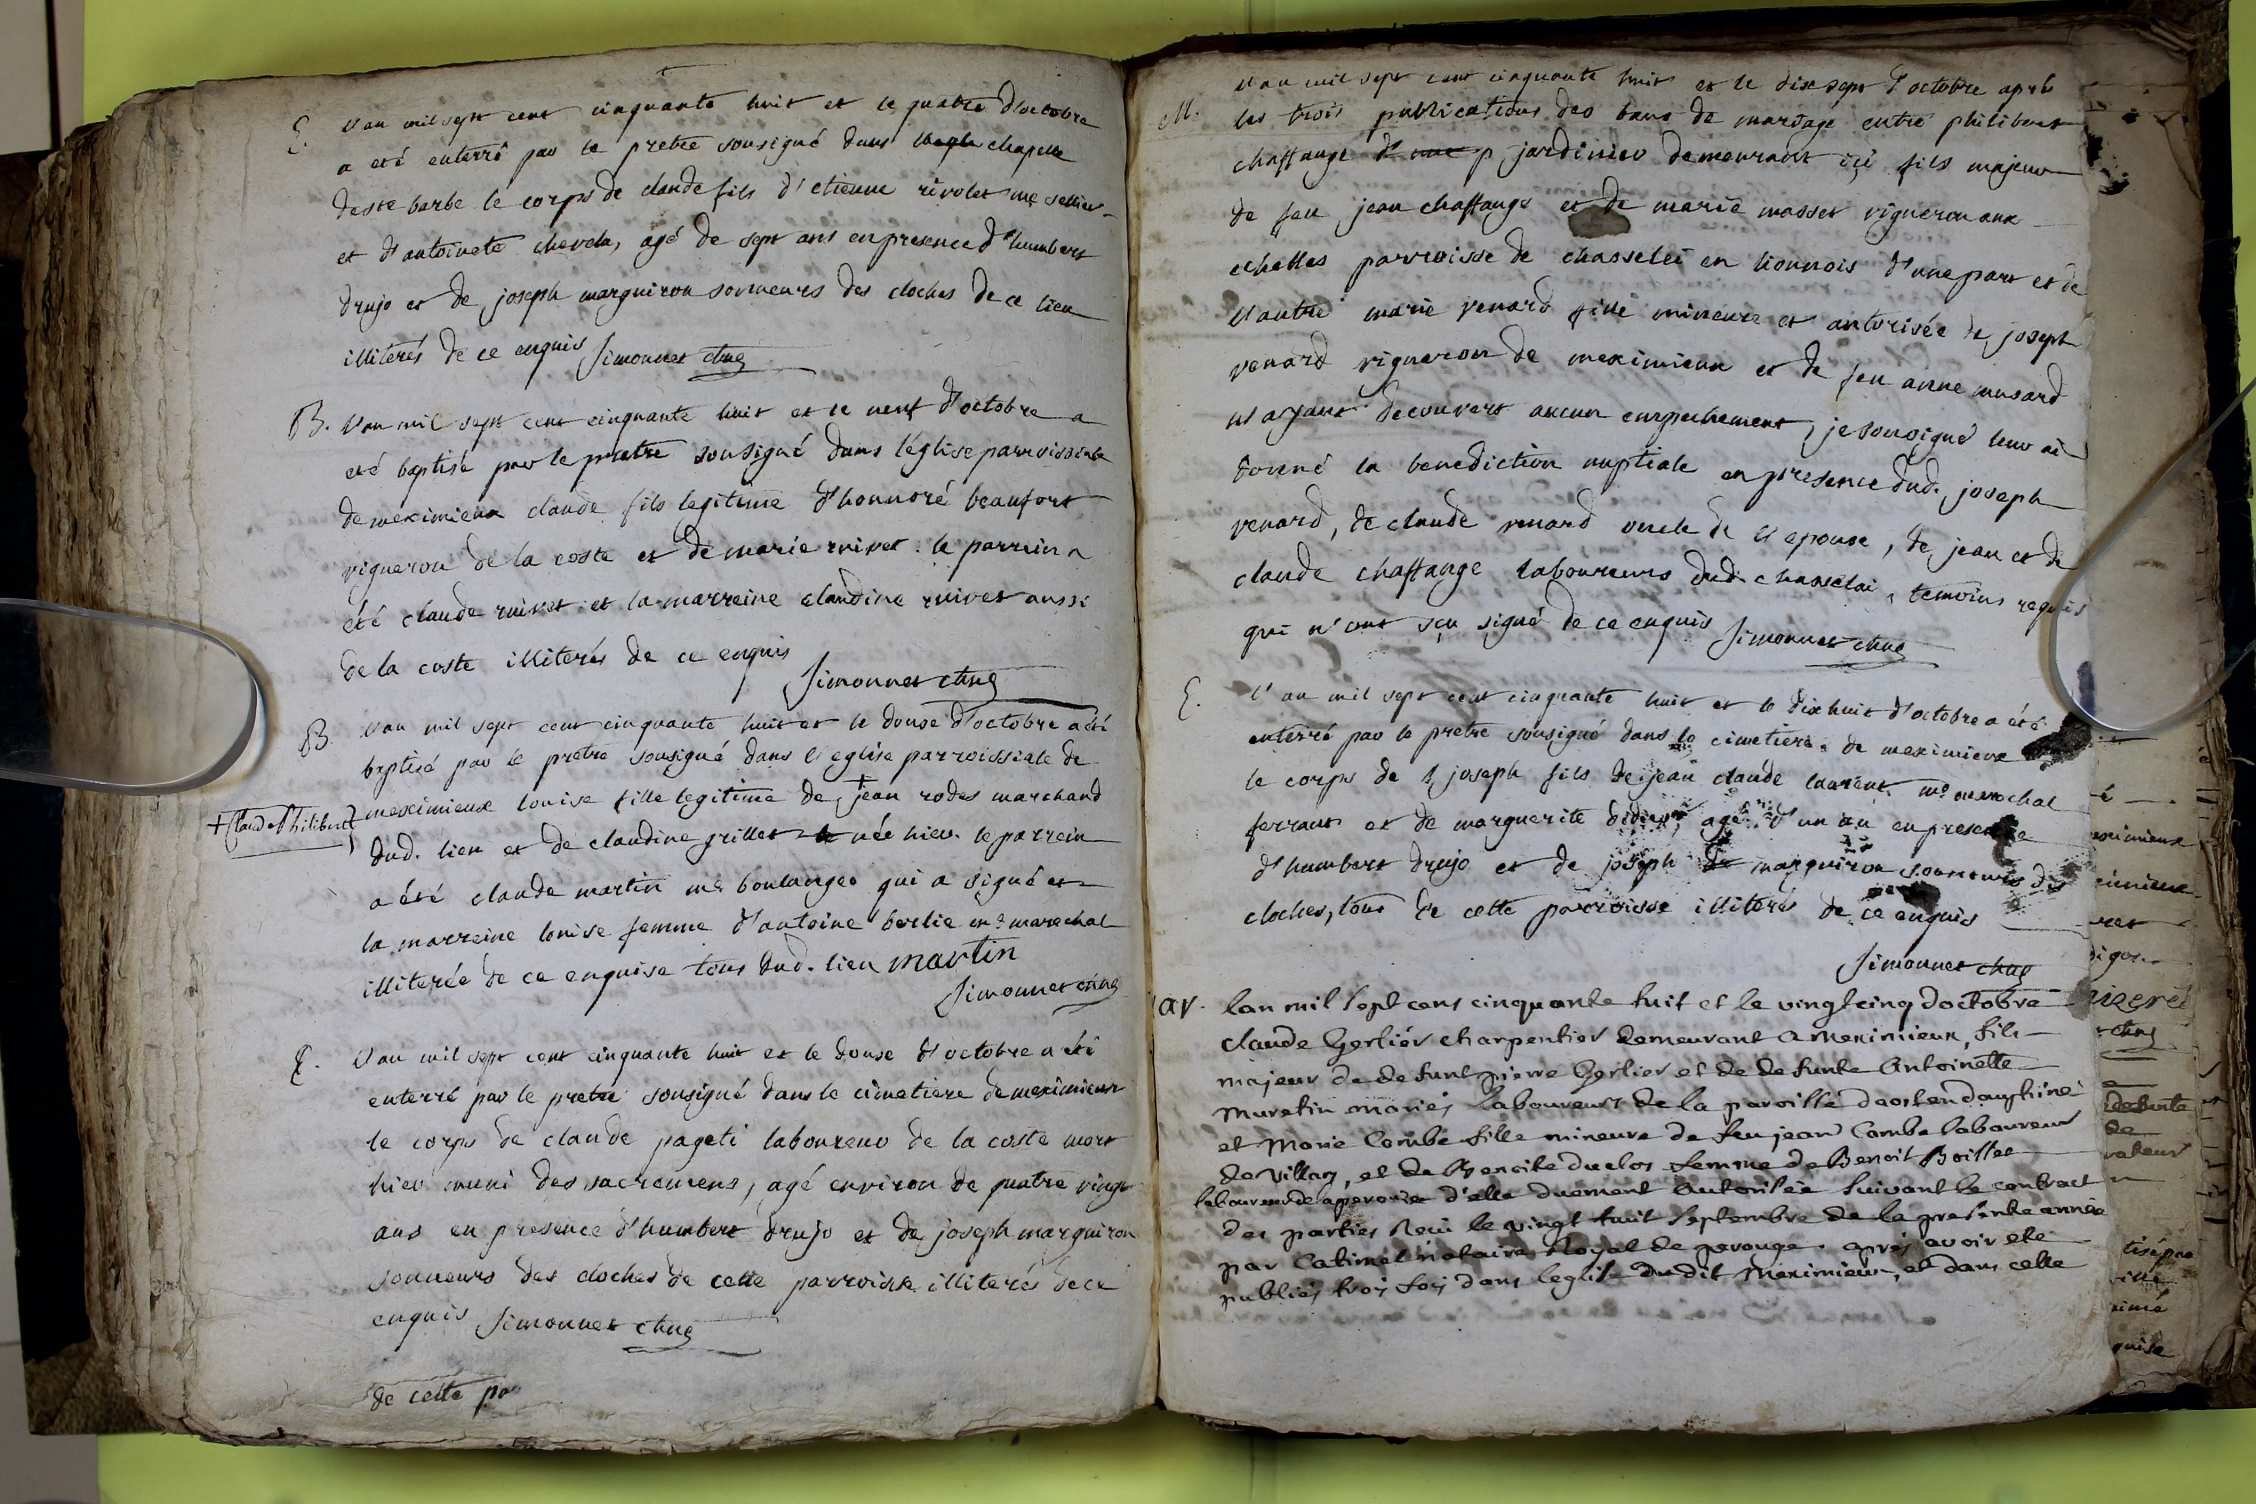 E. l'an mil sept cent cinquante huit et le quatre d'octobre
a eté enterré par le pretre sousigné dans chapelle
de ste barbe le corps de claude fils d'etienne rivolet me sellier
et d'antoinete chevela, agé de sept ans en presence d'humbert
drujo et de joseph marguiron sonneurs des cloches de ce lieu
illiterés de ce enquis Simonnet
B. l'an mil sept cent cinquante huit et le neuf d'octobre a
eté baptisé par le pretre sousigné dans l'église parroissiale
de meximieux claude fils legitime d'honnoré beaufort
vigneron de la coste et de marie ruivet. le parrein a
été claude ruivet et la marreine claudine ruivet aussi
de la coste illiterés de ce enquis
Simonnet
B. l'an mil sept cent cinquante huit et le douse d'octobre a été
baptisé par le pretre sousigné dans l'eglise parroissiale de
+ Claude Philibert
meximieux louise fille legitime de + jean rodes marchand
dud. lieu et de claudine grillet née hier. le parrein
a été claude martin me boulanger qui a signé et
la marreine louise femme d'antoine berlie me marechal
illiterée de ce enquise tous dud. lieu martin
Simonnet
E. l'an mil sept cent cinquante huit et le douse d'octobre a été
enterré par le pretre sousigné dans le cimetiere de meximieux
le corps de claude pageti laboureur de la coste mort
hier muni des sacremens, agé environ de quatre vingt
ans en presence d'humbert drujo et de joseph marguiron
sonneurs des cloches de cette parroisse illiterés de ce
enquis Simonnet
de cette pa
M. l'an mil sept cent cinquante huit et le dix sept d'octobre aprés
les trois publications des bans de mariage entre philibert
chaffange jardinier demeurant ici fils majeur
de feu jean chaffange et de marie masset vigneron aux
echelles parroisse de chasselei en lionnois d'une part et de
l'autre marie venard fille mineure et autorisée de joseph
venard vigneron de meximieux et de feu anne musard
n'ayant decouvert aucun empechement, je sousigné leur ai
donné la benediction nuptiale en presence dud. joseph
venard, de claude venard oncle de l'epouse, de jean et de
claude chaffange laboureurs dud. chasselai, temoins requis
qui n'ont sçu signé de ce enquis Simonnet
E. l'an mil sept cent cinquante huit et le dix huit d'octobre a été
enterré par le pretre sousigné dans le cimetiere de meximieux
le corps de joseph fils de jean claude laurent me marechal
ferrant et de marguerite didier, agé d'un an en presence
d'humbert drujo et de joseph marguiron sonneurs des
cloches, tous de cette parroisse illiterés de ce enquis
Simonnet
ar. lan mil sept cens cinquante huit et le vingt cinq doctobre
claude Gerlier charpentier demeurant a Meximieux, fils
majeur de defunt pierre Gerlier et de defunte Antoinette
Muretin mariés laboureurs de la paroisse en dauphiné
et Marie Combe fille mineure de feu jean Combe laboureur
de Villars, et de Benoite duclos femme de Benoit
laboureur de a perouge d'elle duement Autorisée Suivant le contract
des parties Recu le vingt huit Septembre de la presente année
par Catimel notaire Royal de perouge. aprés avoir été
publiés trois fois dans leglise dudit Meximieux, et dans celle